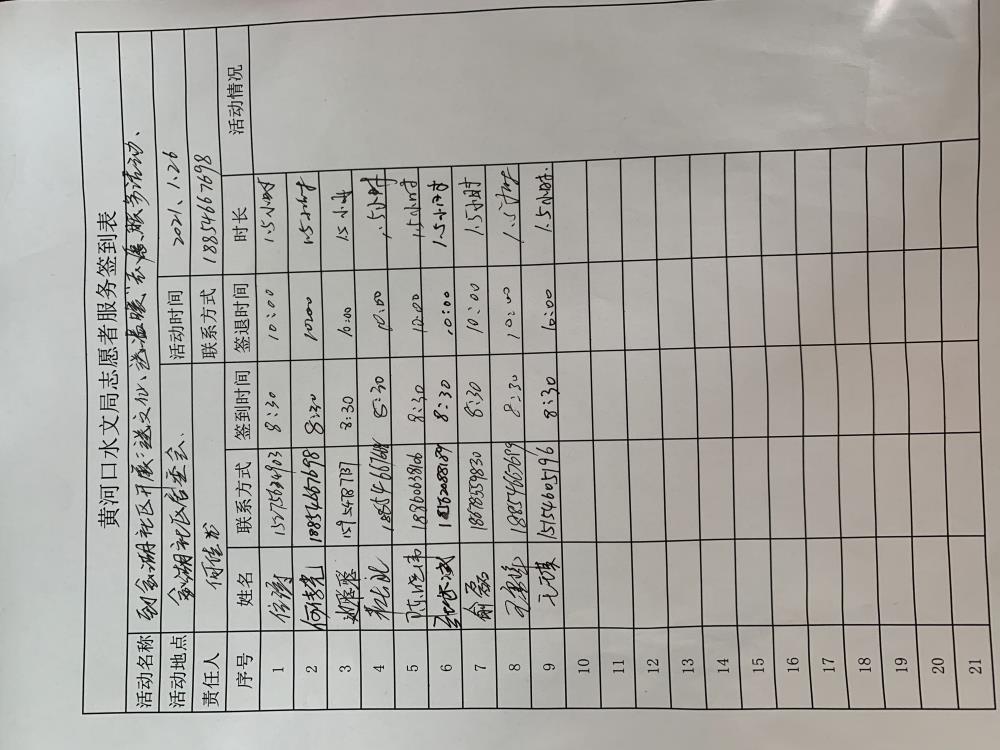 黄河口水文局志愿者服务签到表
活动名称 到金湖社区开展"送文化、送温暖"志愿服务活动、
活动地点 金湖社区居委会. 活动时间 2021、1.26
责任人 联系方式 18854667698
序号 姓名 联系方式 签到时间 签退时间 时长 活动情况
1 8:30 10:00 1.5小时
2 18854667698 8:30 1000 1.5小时
3 8:30 10:00 1.5小时
4 8:30 10:00 1.5小时
5 8:30 10:00 1.5小时
6 8:30 10:00 1.5小时
7 俞磊 18678359830 8:30 10:00 1.5小时
8 18854667699 8:30 10:00 1.5小时
9 15154605196 8:30 10:00 1.5小时.
10
11
12
13
14
15
16
17
18
19
20
21